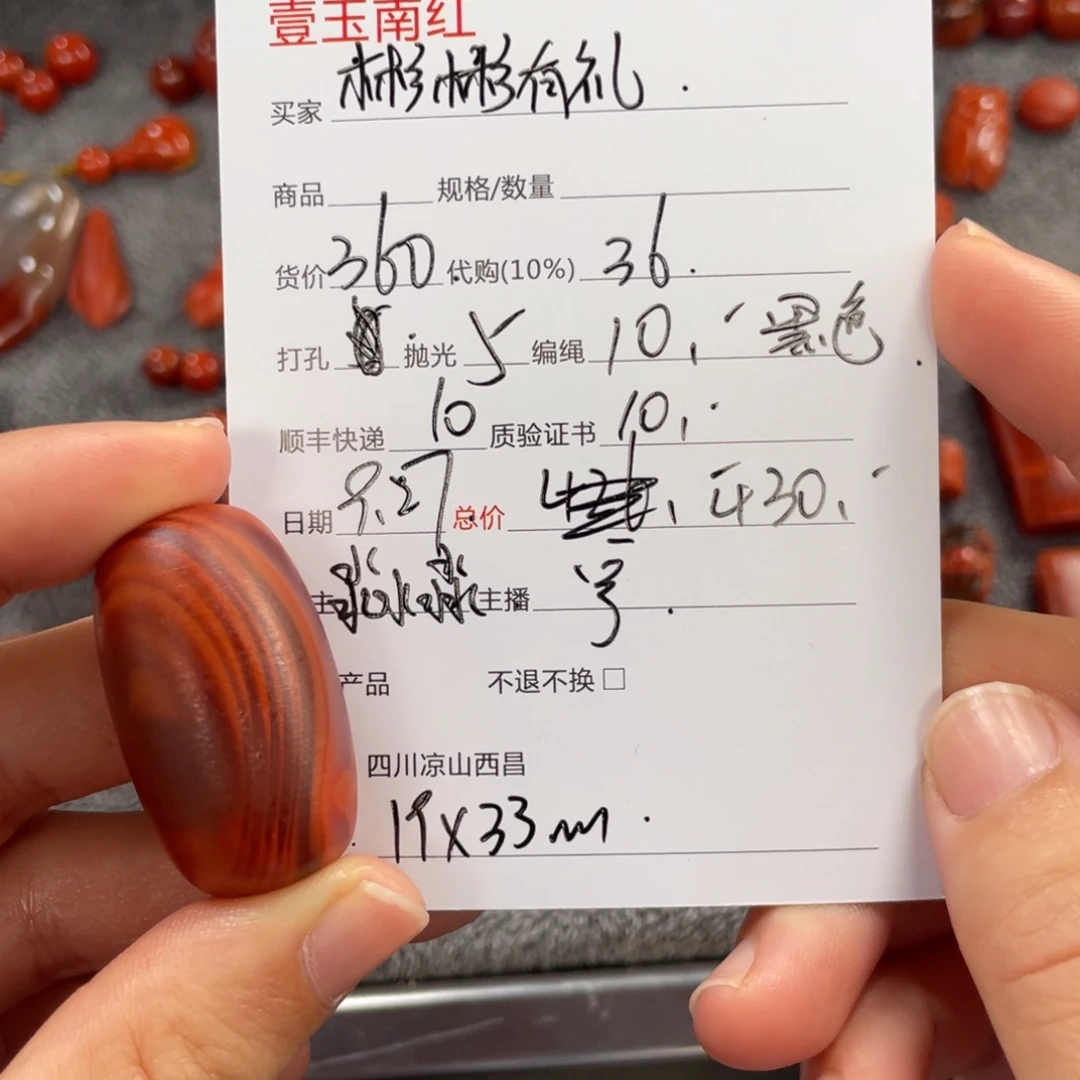 壹玉南红
买家 彬彬有礼.
商品 规格/数量
货价 360 代购(10%) 36.
打孔 抛光 5 编绳 10, 黑色.
顺丰快递 10 质验证书 10,
日期 9.27 总价 430.
主 主播
产品 不退不换□
四川凉山西昌
19X33mm.